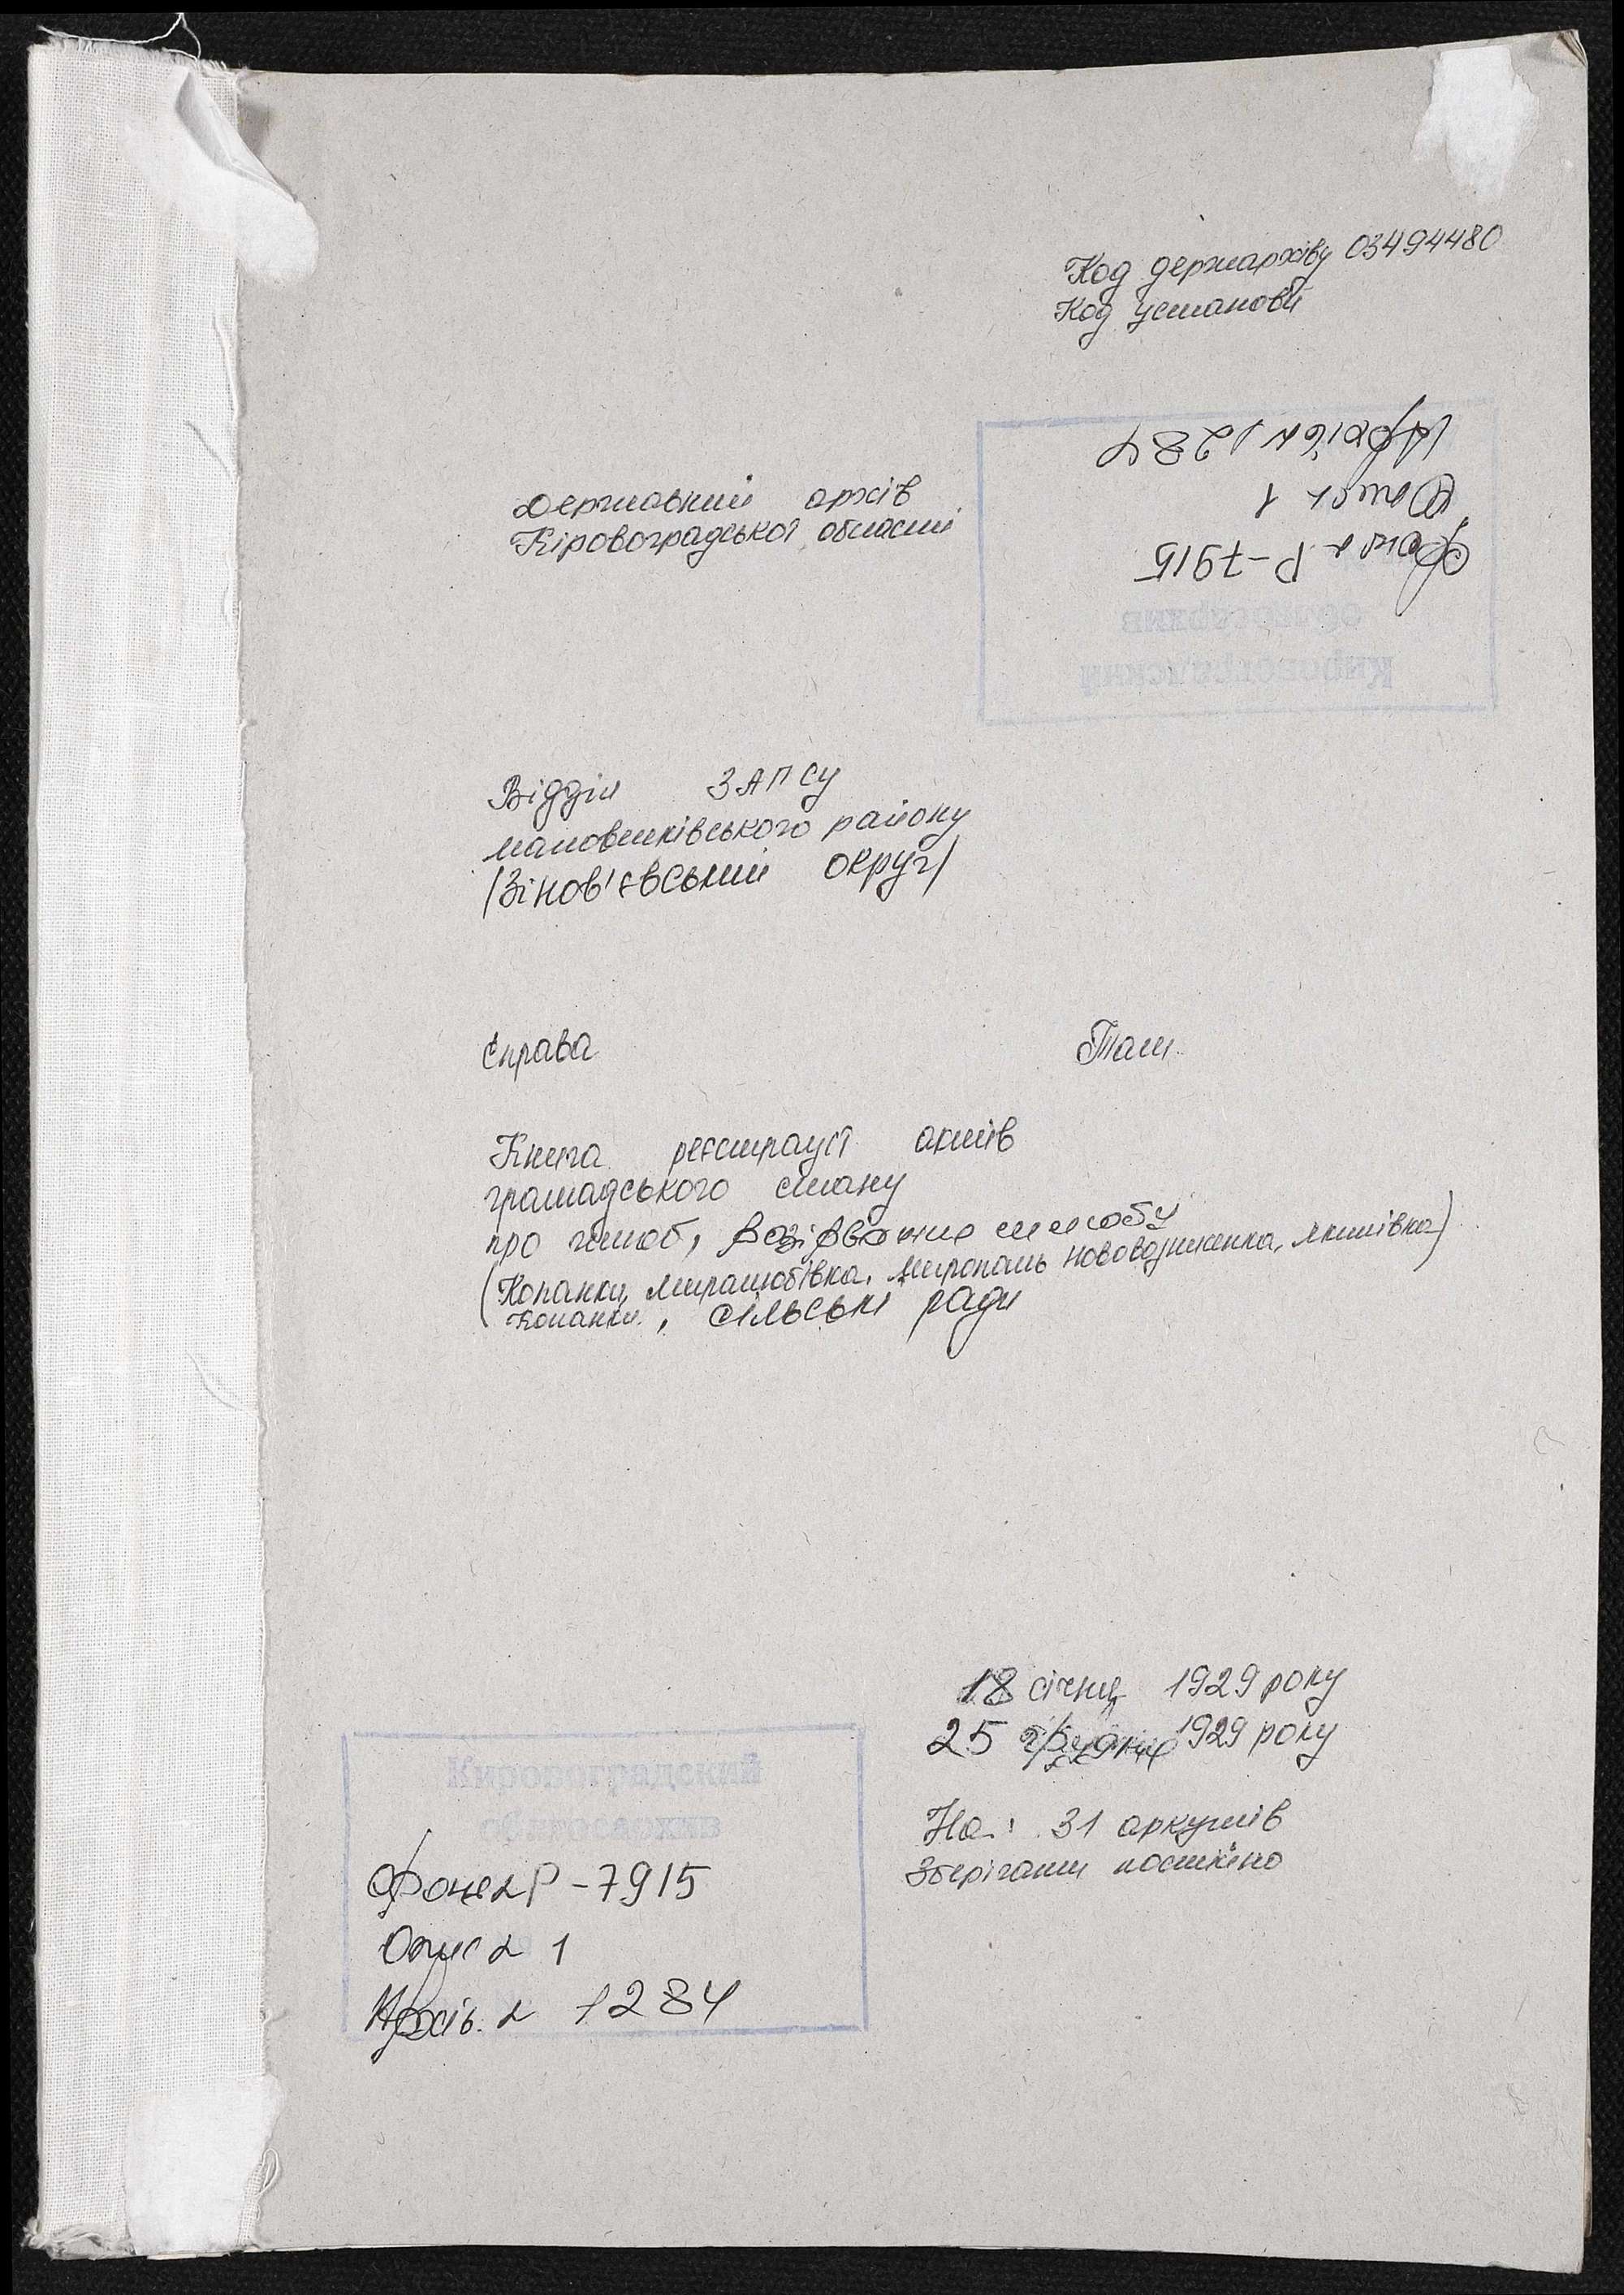 Код держархіву 03494480
Код установи
Архів № 1284
Опис № 1
Фонд № Р-7915
облгосархив
Кировоградский
Державний архів
Кіровоградської області
Відділ ЗАГСу
маловисківського району
/Зінов'євський округ/
Справа Том
Книга реєстрації актів
громадського стану
про шлюб, розірвання шлюбу
(Копанки, Миролюбівка, Миропаль
Копанки, сільські ради
18 січня 1929 року
25 грудня 1929 року
На: 31 аркушів
Зберігати постійно
Кировоградский
облгосархив
Фонд № Р-7915
Опис № 1
Архів. № 1284